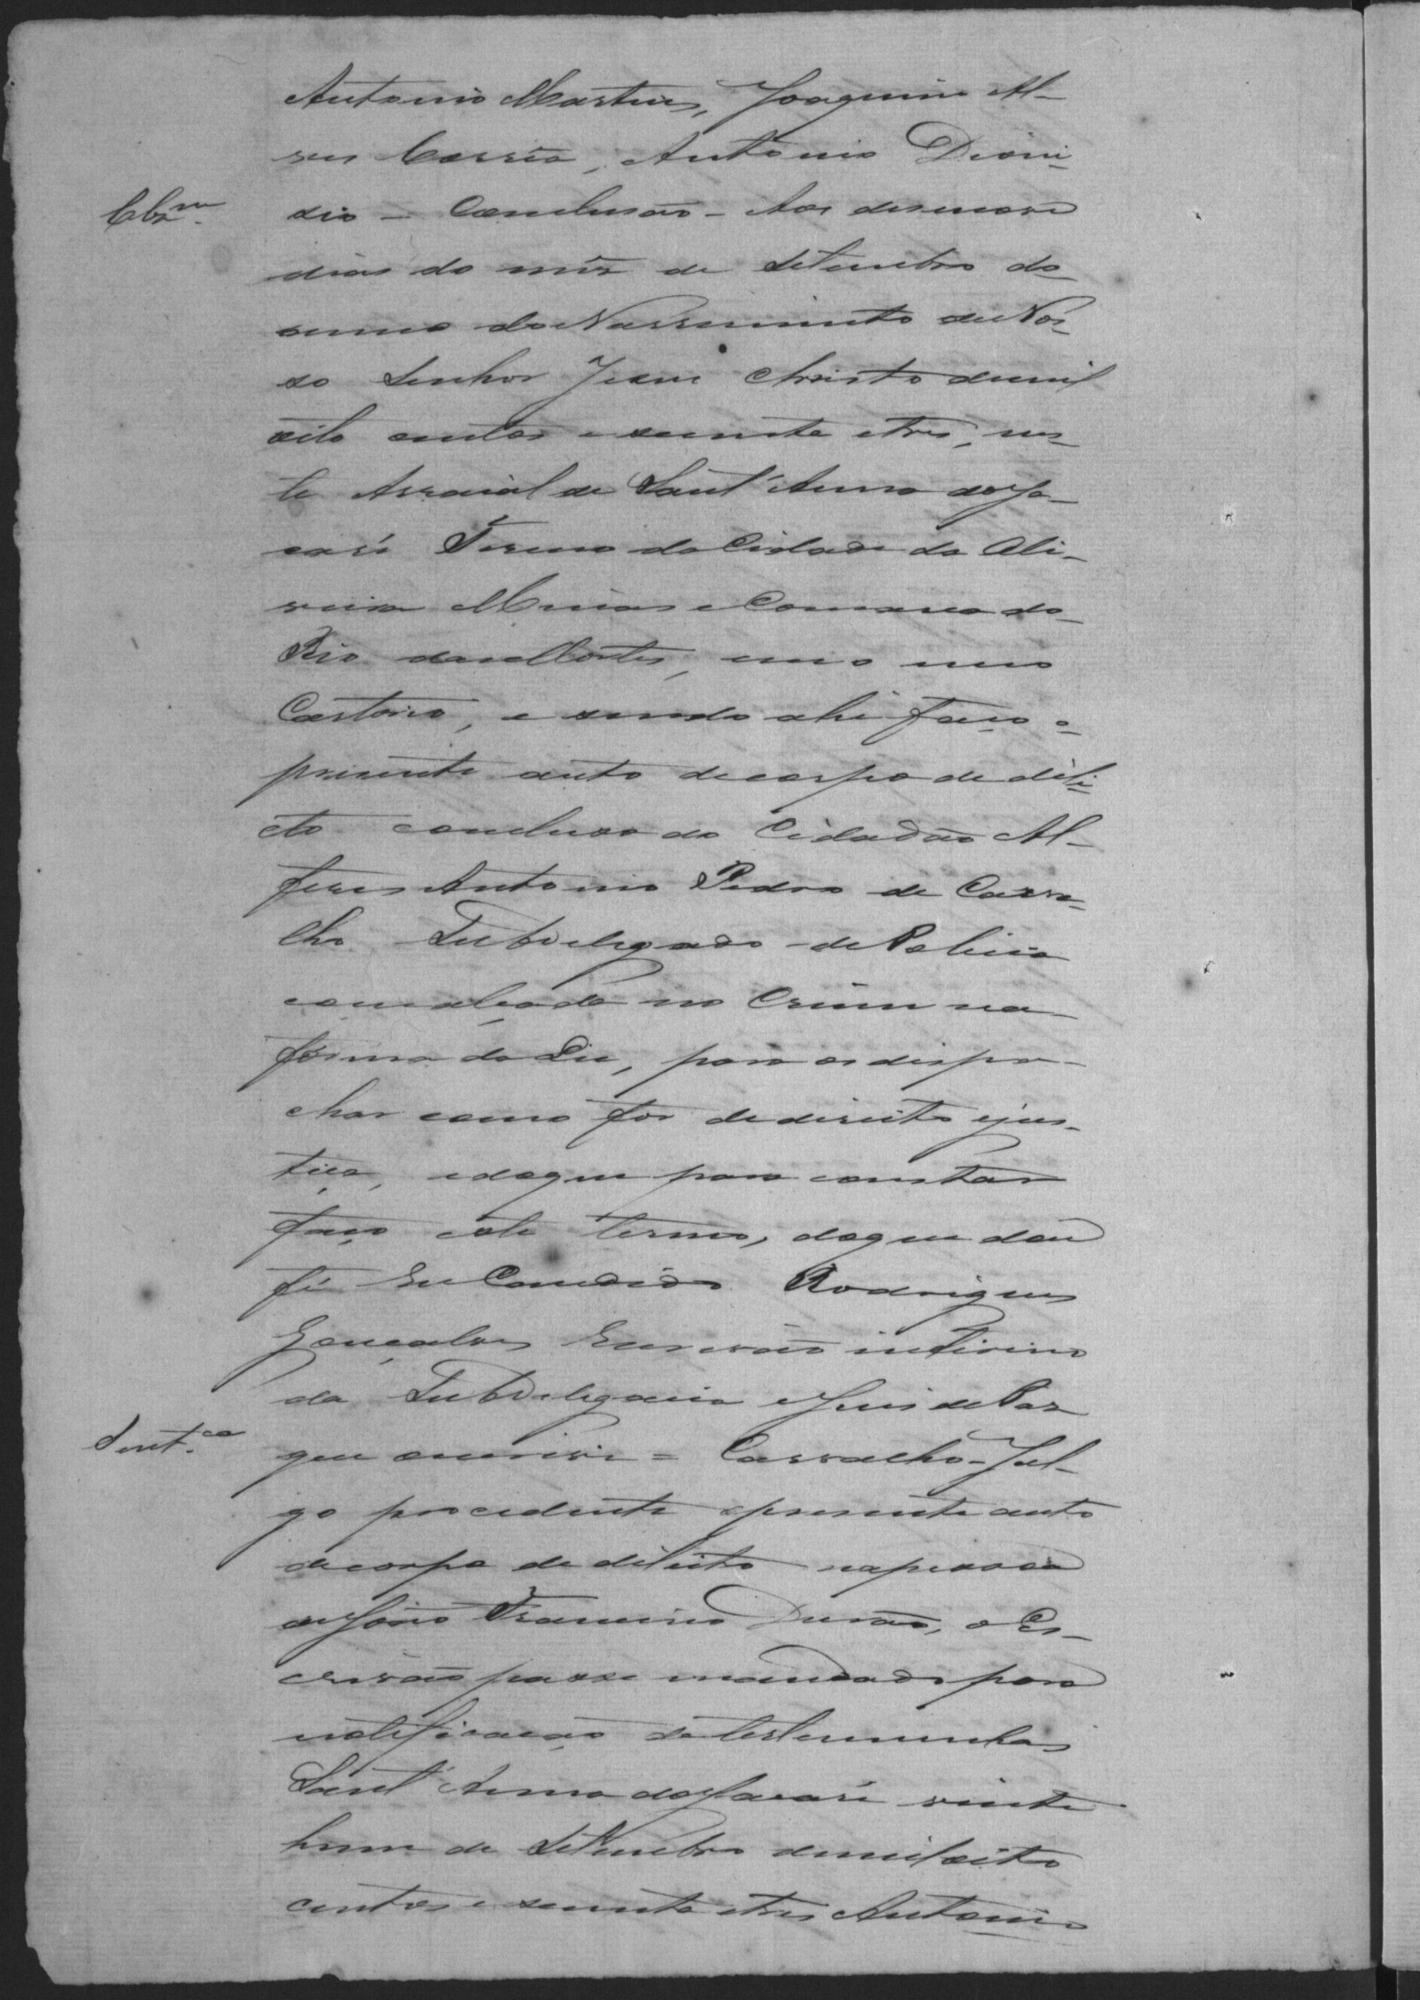 Antonio Martins, Joaquim Al-
ves Corrêa, Antonio Dioni-
Clzm.
sio - Conclusão - Aos desenove
dias do mês de Setembro do
anno do Nascimento de Nos-
so Senhor Jesus Christo de mil
oito centos e secenta e tres, nes-
te Arraial de Sant'Anna do Ja-
caré Termo da Cidade da Oli-
veira Minas e Comarca do
Rio das Mortes, em o meu
Cartorio, e sendo ahi faço o
presente auto de corpo de deli-
cto concluso ao Cidadão Al-
feres Antonio Pedro de Carva-
lho Subdelegado de Policia
com alçada no Crime na
forma da Lei, para os despa-
char como for de direito e jus-
tiça, e do que para constar
faço este termo, do que dou
fé Eu Candido Rodrigues
Gonçalves Escrivão interino
da Subdelegacia e Juis de Pas
Sent.ca
que escrivi = Carvalho - Jul-
go procedente o presente auto
de corpo de delicto na pessoa
de João Francisco Durão, o Es-
crivão passe mandado para
notificação de testemunhas
Sant'Anna do Jacaré vinte
hum de Setembro de mil oito
centos e secenta e tres Antonio